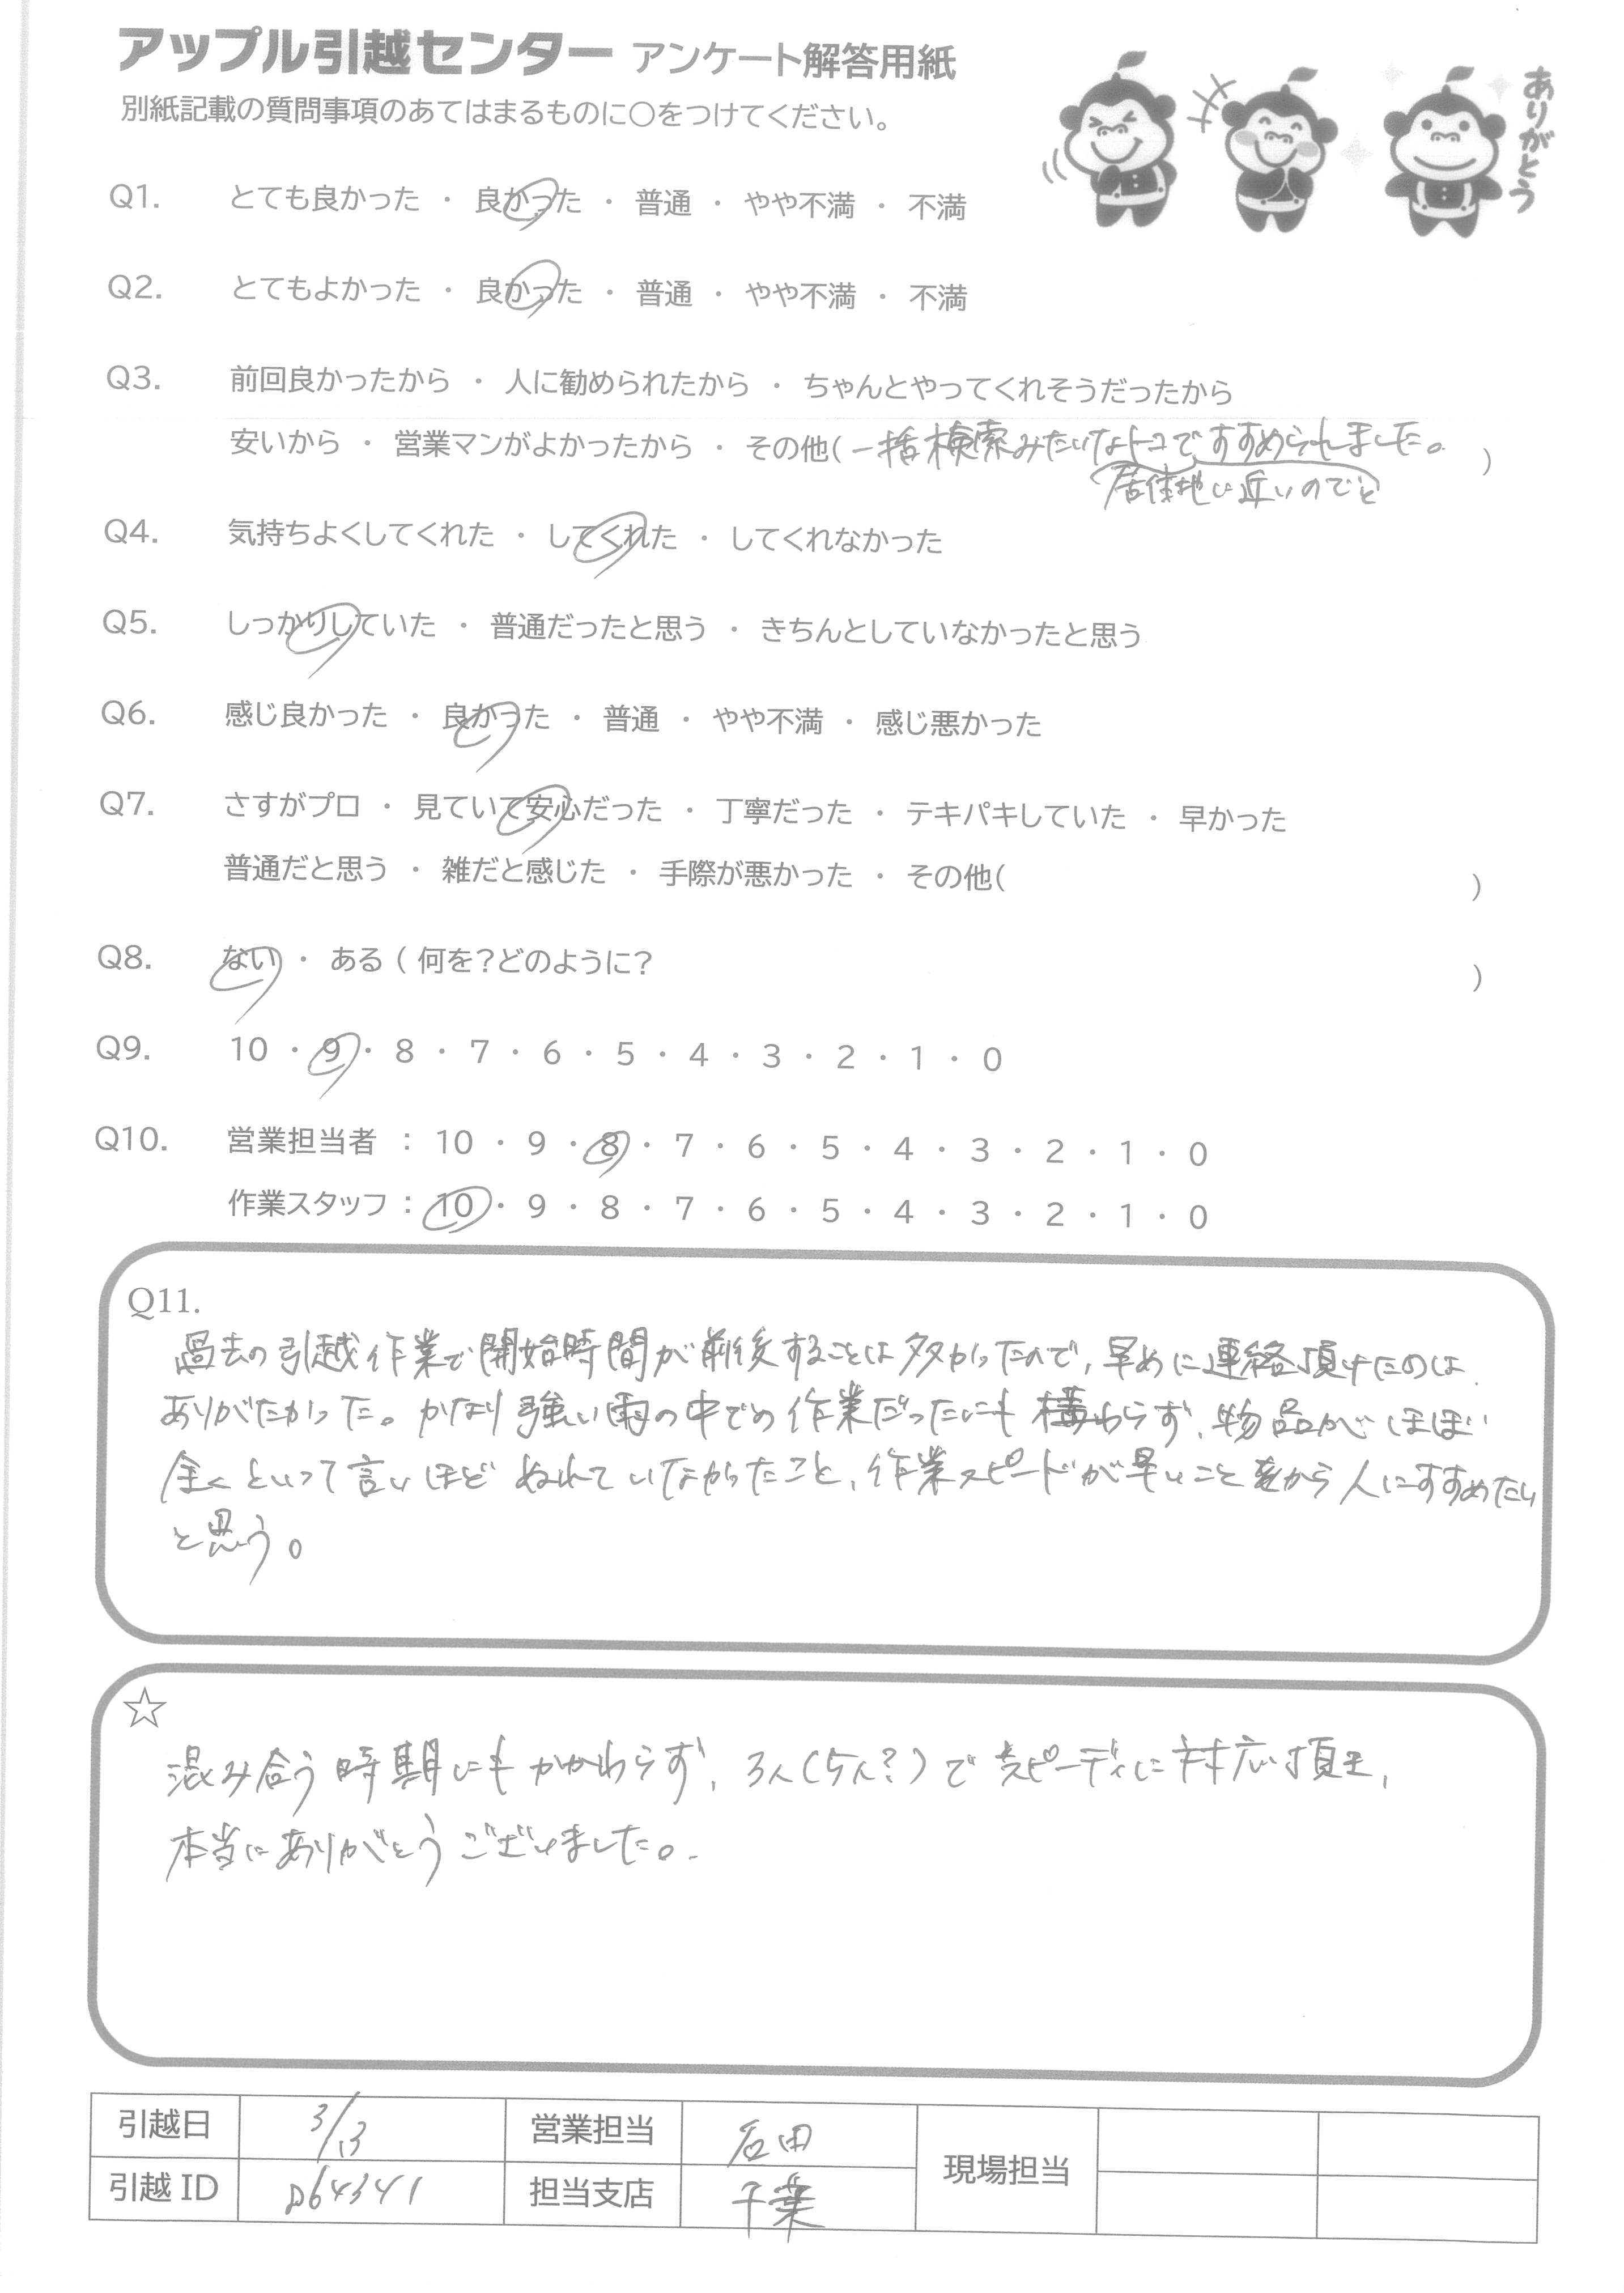 アップル引越センター アンケート解答用紙
別紙記載の質問事項のあてはまるものに○をつけてください。
ありがとう
Q1. とても良かった ・ 良かった ・ 普通 ・ やや不満 ・ 不満
Q2. とてもよかった ・ 良かった ・ 普通 ・ やや不満 ・ 不満
Q3. 前回良かったから ・ 人に勧められたから ・ ちゃんとやってくれそうだったから
安いから ・ 営業マンがよかったから ・ その他(一括検索みたいなトコですすめられました。)
居住地に近いのでと
Q4. 気持ちよくしてくれた ・ してくれた ・ してくれなかった
Q5. しっかりしていた ・ 普通だったと思う ・ きちんとしていなかったと思う
Q6. 感じ良かった ・ 良かった ・ 普通 ・ やや不満 ・ 感じ悪かった
Q7. さすがプロ ・ 見ていて安心だった ・ 丁寧だった ・ テキパキしていた ・ 早かった
普通だと思う ・ 雑だと感じた ・ 手際が悪かった ・ その他( )
Q8. ない ・ ある ( 何を?どのように? )
Q9. 10 ・ 9 ・ 8 ・ 7 ・ 6 ・ 5 ・ 4 ・ 3 ・ 2 ・ 1 ・ 0
Q10. 営業担当者 : 10 ・ 9 ・ 8 ・ 7 ・ 6 ・ 5 ・ 4 ・ 3 ・ 2 ・ 1 ・ 0
作業スタッフ : 10 ・ 9 ・ 8 ・ 7 ・ 6 ・ 5 ・ 4 ・ 3 ・ 2 ・ 1 ・ 0
Q11.
過去の引越作業で開始時間が前後することは多かったので、早めに連絡頂けたのは
ありがたかった。かなり強い雨の中での作業だったにも構わらず、物品がほぼ
全くといって言いほどぬれていなかったこと、作業スピードが早いことから人にすすめたい
と思う。
☆
混み合う時期にもかかわらず、3人(5人?)でスピーディに対応頂き、
本当にありがとうございました。
引越日 3/13 営業担当 石田 現場担当
引越 ID D64341 担当支店 千葉